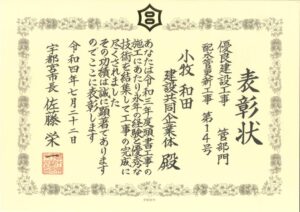 表彰状
優良建設工事 管部門
配水管更新工事 第14号
小牧 和田
建設共同企業体 殿
あなたは令和三年度頭書工事の
施工にあたり永年の経験と優秀な
技術を結集して工事の完成に
尽くされました
その功績は誠に顕著であります
のでここに表彰します
令和四年七月二十二日
宇都宮市長 佐藤栄一